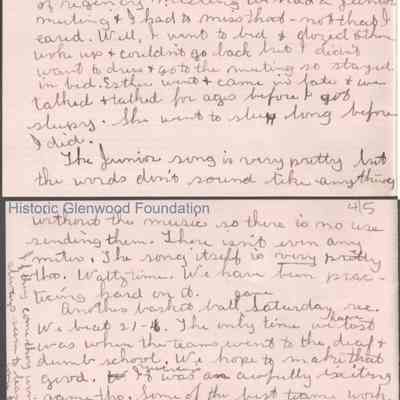 meeting & I had to miss that - not that I
cared. Well, I went to bed & dozed & then
woke up & couldn't go back but I didn't
want to dress & go to the meeting so stayed
in bed. Esther went & came in late & we
talked & talked for ages before I got
sleepy. She went to sleep long before
I did.
The Junior song is very pretty but
the words don't sound like anything
Historic Glenwood Foundation
4/5
without the music so there is no use
sending them. There isn't even any
meter. The song itself is very pretty
tho. Waltz time. We have been prac-
ticing hard on it.
Another basket ball game Saturday eve.
We beat 21-
The only time we have lost
was when the teams went to the deaf &
dumb school. We hope to make that
good. It was an awfully exciting
game tho. Some of the best teams work